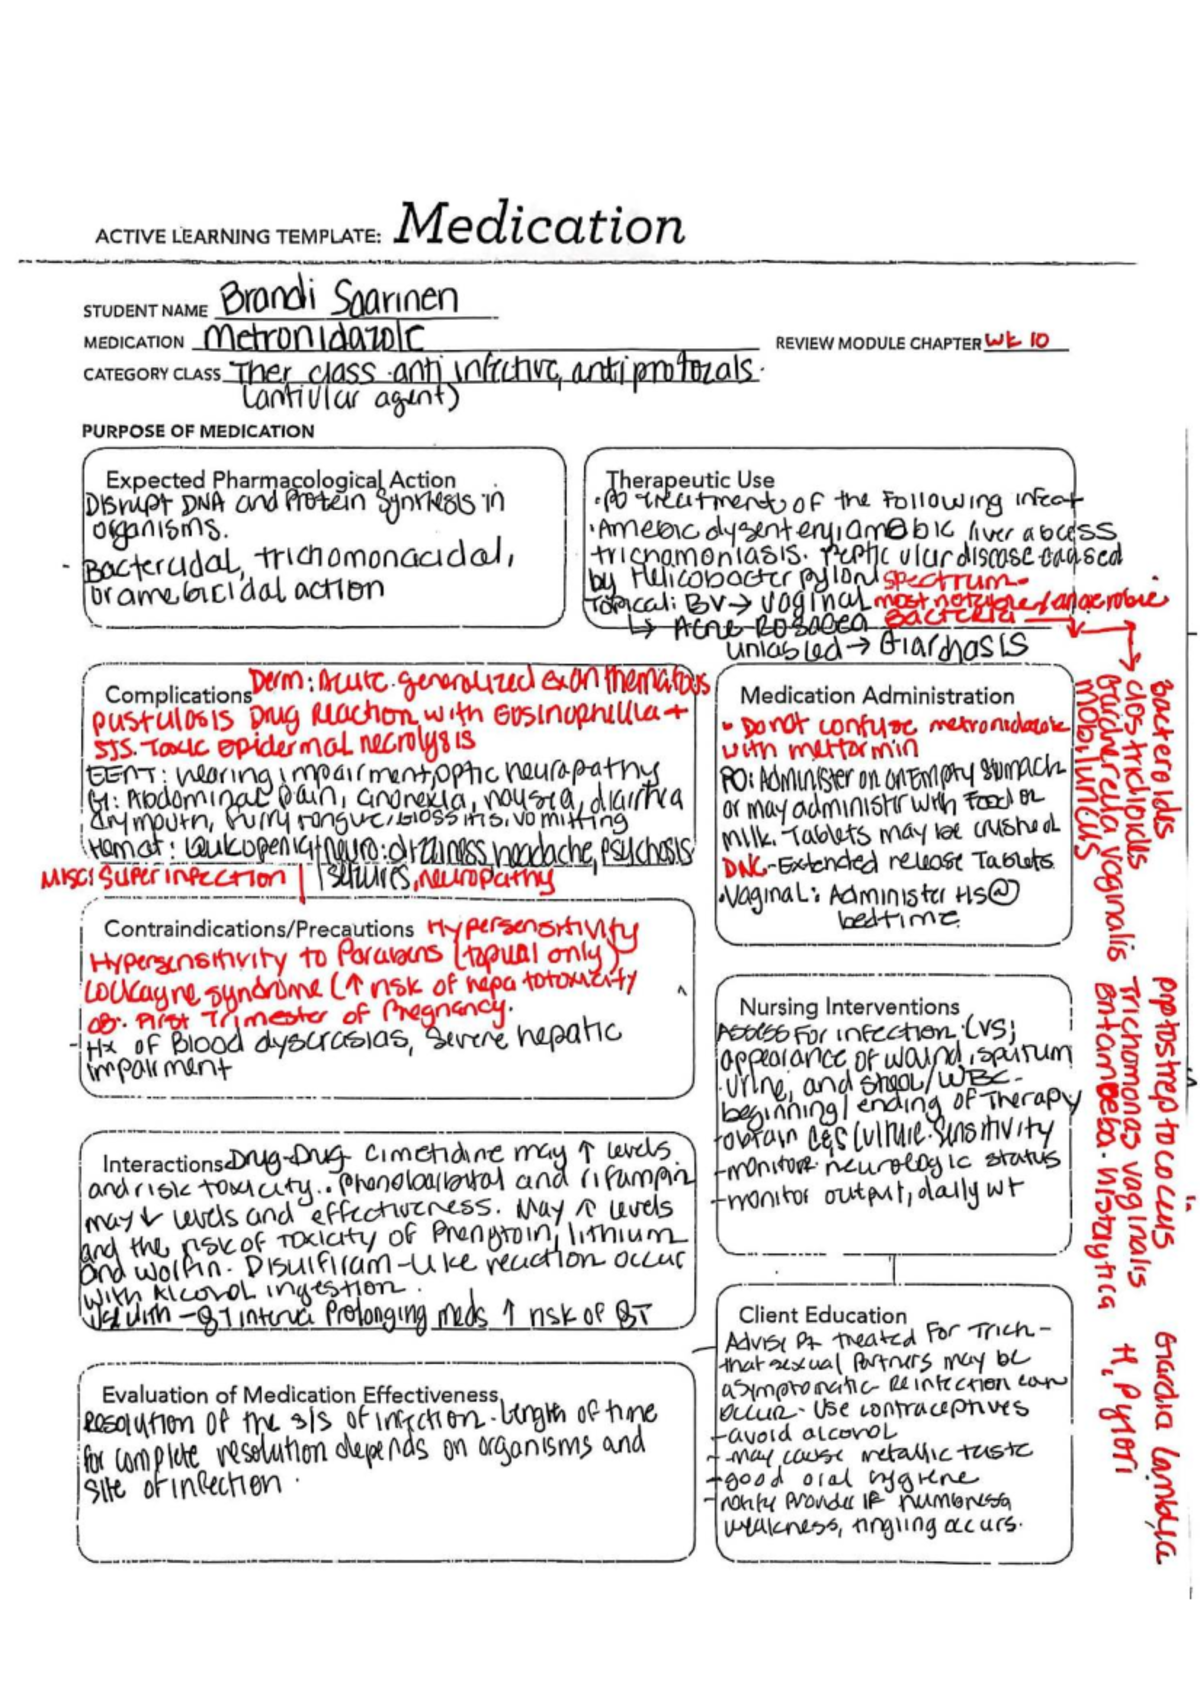 ACTIVE LEARNING TEMPLATE: Medication
STUDENT NAME Brandi Saarinen
MEDICATION Metronidazole
REVIEW MODULE CHAPTER Wk 10
CATEGORY CLASS Ther class anti infective, antiprotozals.
(antiulcer agent)
PURPOSE OF MEDICATION
Expected Pharmacological Action
Disrupt DNA and Protein Synthesis in
organisms.
- Bactericidal, trichomonacidal,
or amebicidal action
Therapeutic Use
· PO treatment of the Following infect
· Amebic dysentery, amebic liver abcess
trichamoniasis. Peptic ulcer disease caused
by Helicobacter pylori spectrum-
Topical: BV → vaginal most notable / anaerobic
↳ Acne Rosacea Bacteria
unlabled → Giardiasis
Bacteroides
clostridioides
Gardnerella vaginalis
mobiluncus
Complications Derm: Acute generalized exanthematous
pustulosis Drug Reaction with Eosinophilia +
SJS. Toxic epidermal necrolysis
EENT: hearing impairment, optic neuropathy
GI: Abdominal pain, anorexia, nausea, diarrhea
dry mouth, furry tongue, glossitis, vomitting
Hemat: Leukopenia Neuro: dizziness, headache, psychosis
MISC: Super infection | seizures, neuropathy
Medication Administration
- Do not confuse metronidazole
with metformin
PO: Administer on an Empty Stomach
or may administer with Food or
milk. Tablets may be crushed
DNC - Extended release Tablets
· Vaginal: Administer HS @
bedtime
Contraindications/Precautions Hypersensitivity
Hypersensitivity to Parabens (topical only)
Cockayne syndrome (↑ risk of hepatotoxicity
OB: First Trimester of Pregnancy.
- Hx of Blood dyscrasias, Severe hepatic
impairment
Nursing Interventions
Assess For infection (VS;
appearance of wound, sputum
urine, and stool / WBC -
beginning / ending of Therapy
- obtain C&S Culture Sensitivity
- monitor neurologic status
- monitor output, daily wt
Peptostreptococcus
Trichomonas vaginalis
Entamoeba histolytica
Interactions Drug-Drug Cimetidine may ↑ levels
and risk toxicity.. Phenobarbital and rifampin
may ↓ levels and effectiveness. May ↑ levels
and the risk of toxicity of Phenytoin, lithium
and warfin. Disulfiram-like reaction occur
with Alcohol ingestion.
use with - QT interval Prolonging meds ↑ risk of QT
Client Education
Advise Pt treated For Trich -
that sexual Partners may be
asymptomatic Reinfection can
occur - Use contraceptives
- avoid alcohol
- may cause metallic taste
- good oral hygiene
- notify Provider if numbness
weakness, tingling occurs.
Giardia lamblia
H. Pylori
Evaluation of Medication Effectiveness
Resolution of the s/s of infection. Length of time
for complete resolution depends on organisms and
site of infection.